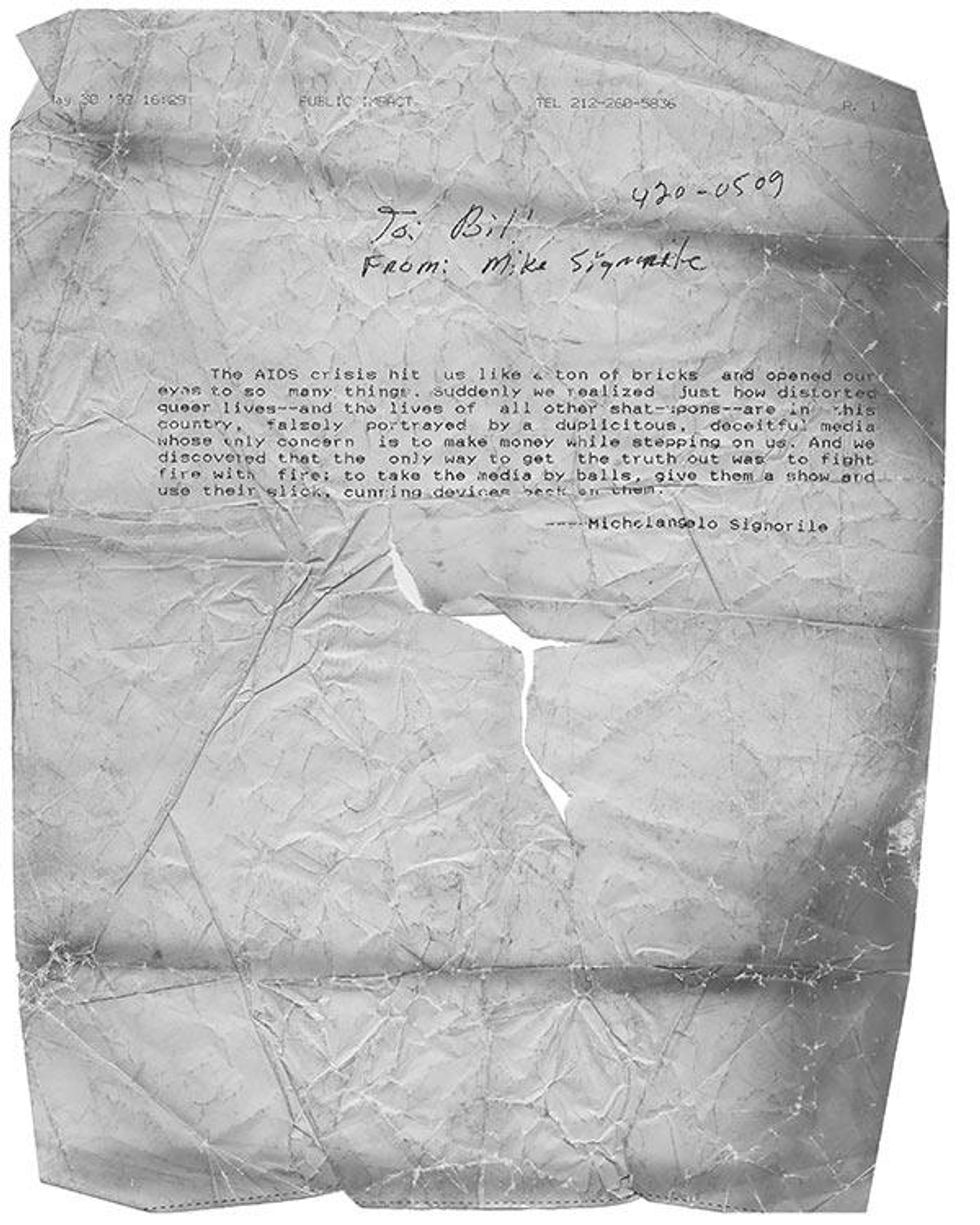 30 16:29 PUBLIC IMPACT TEL 212-260-5836 P. 1
420-0509
To: Bill
From: Mike Signorile
The AIDS crisis hit us like a ton of bricks and opened our
eyes to so many things. Suddenly we realized just how distorted
queer lives--and the lives of all other shat-upons--are in this
country, falsely portrayed by a duplicitous, deceitful media
whose only concern is to make money while stepping on us. And we
discovered that the only way to get the truth out was to fight
fire with fire: to take the media by balls, give them a show and
use their slick, cunning devices back on them.
----Michelangelo Signorile